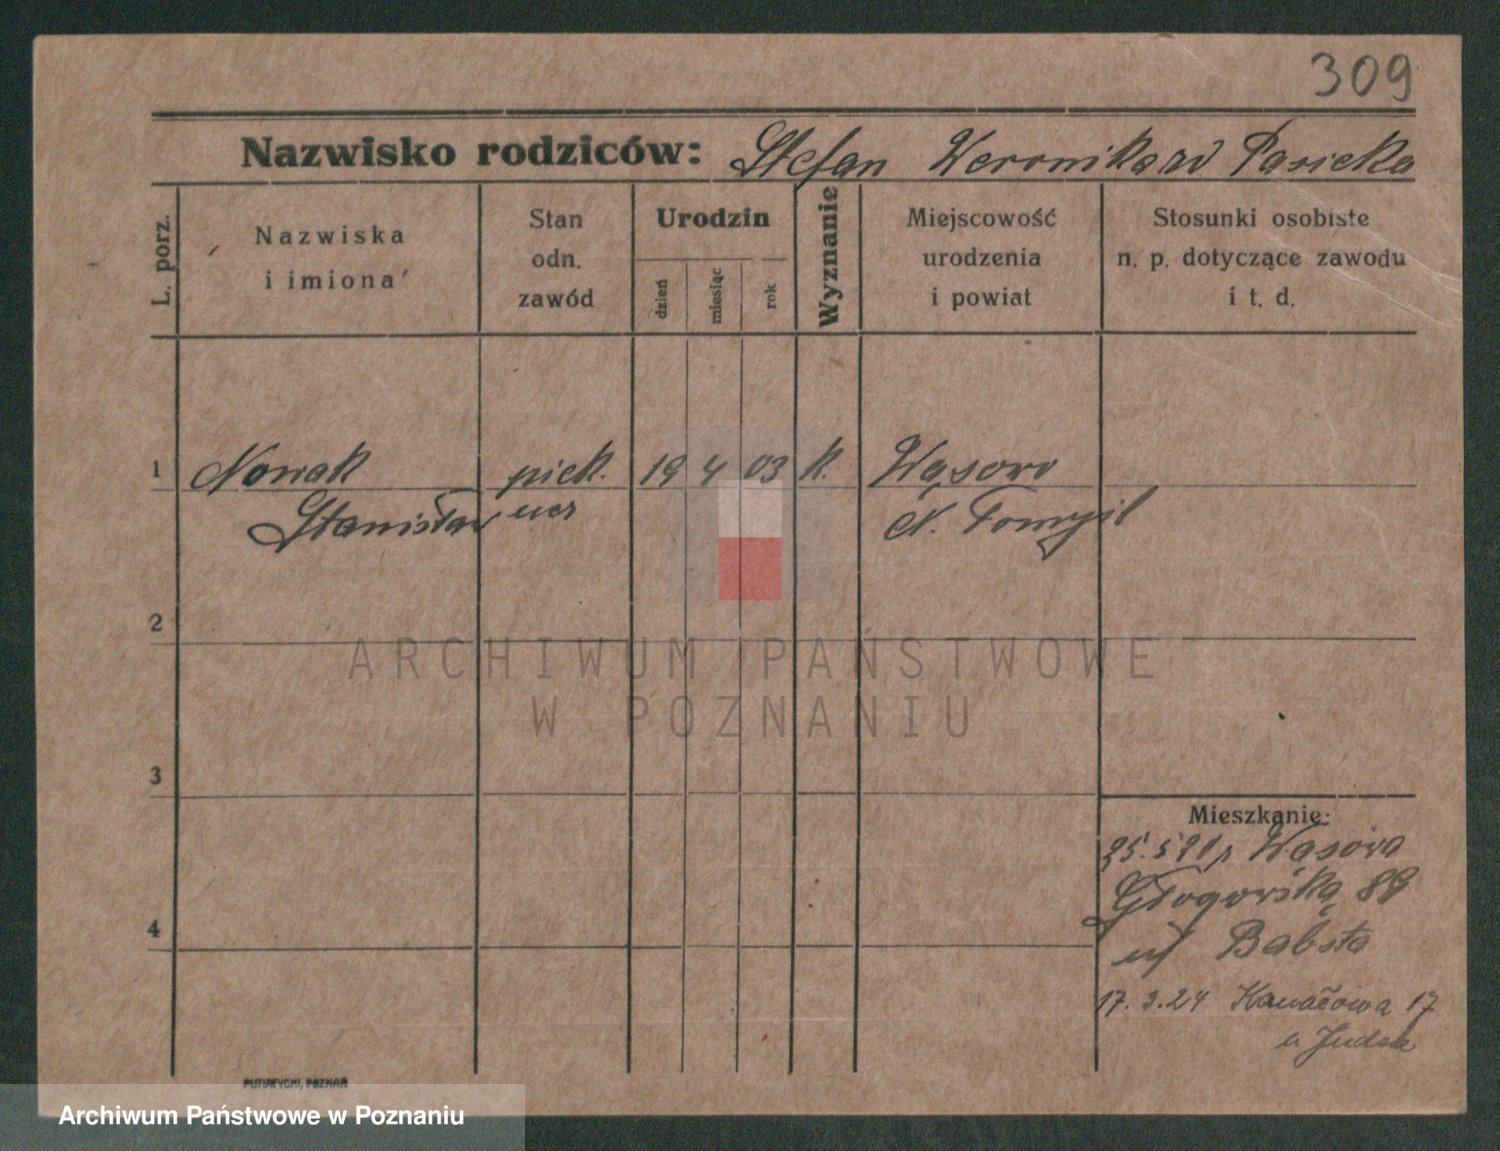 309
Nazwisko rodziców: Stefan Weronika zd Pasicka
L. porz.
Nazwiska
i imiona
Stan
odn.
zawód
Urodzin
dzień
miesiąc
rok
Wyznanie
Miejscowość
urodzenia
i powiat
Stosunki osobiste
n. p. dotyczące zawodu
i t. d.
1 Nowak piek. 19 4 03 k. Wąsowo
Stanisław ucz N. Tomyśl
2
3
4
ARCHIWUM PAŃSTWOWE
W POZNANIU
Mieszkanie:
Wąsowa
Głogowska 89
Babsta
17.3.24 Kanałowa 17
u
PUTIATYCKI, POZNAŃ
Archiwum Państwowe w Poznaniu